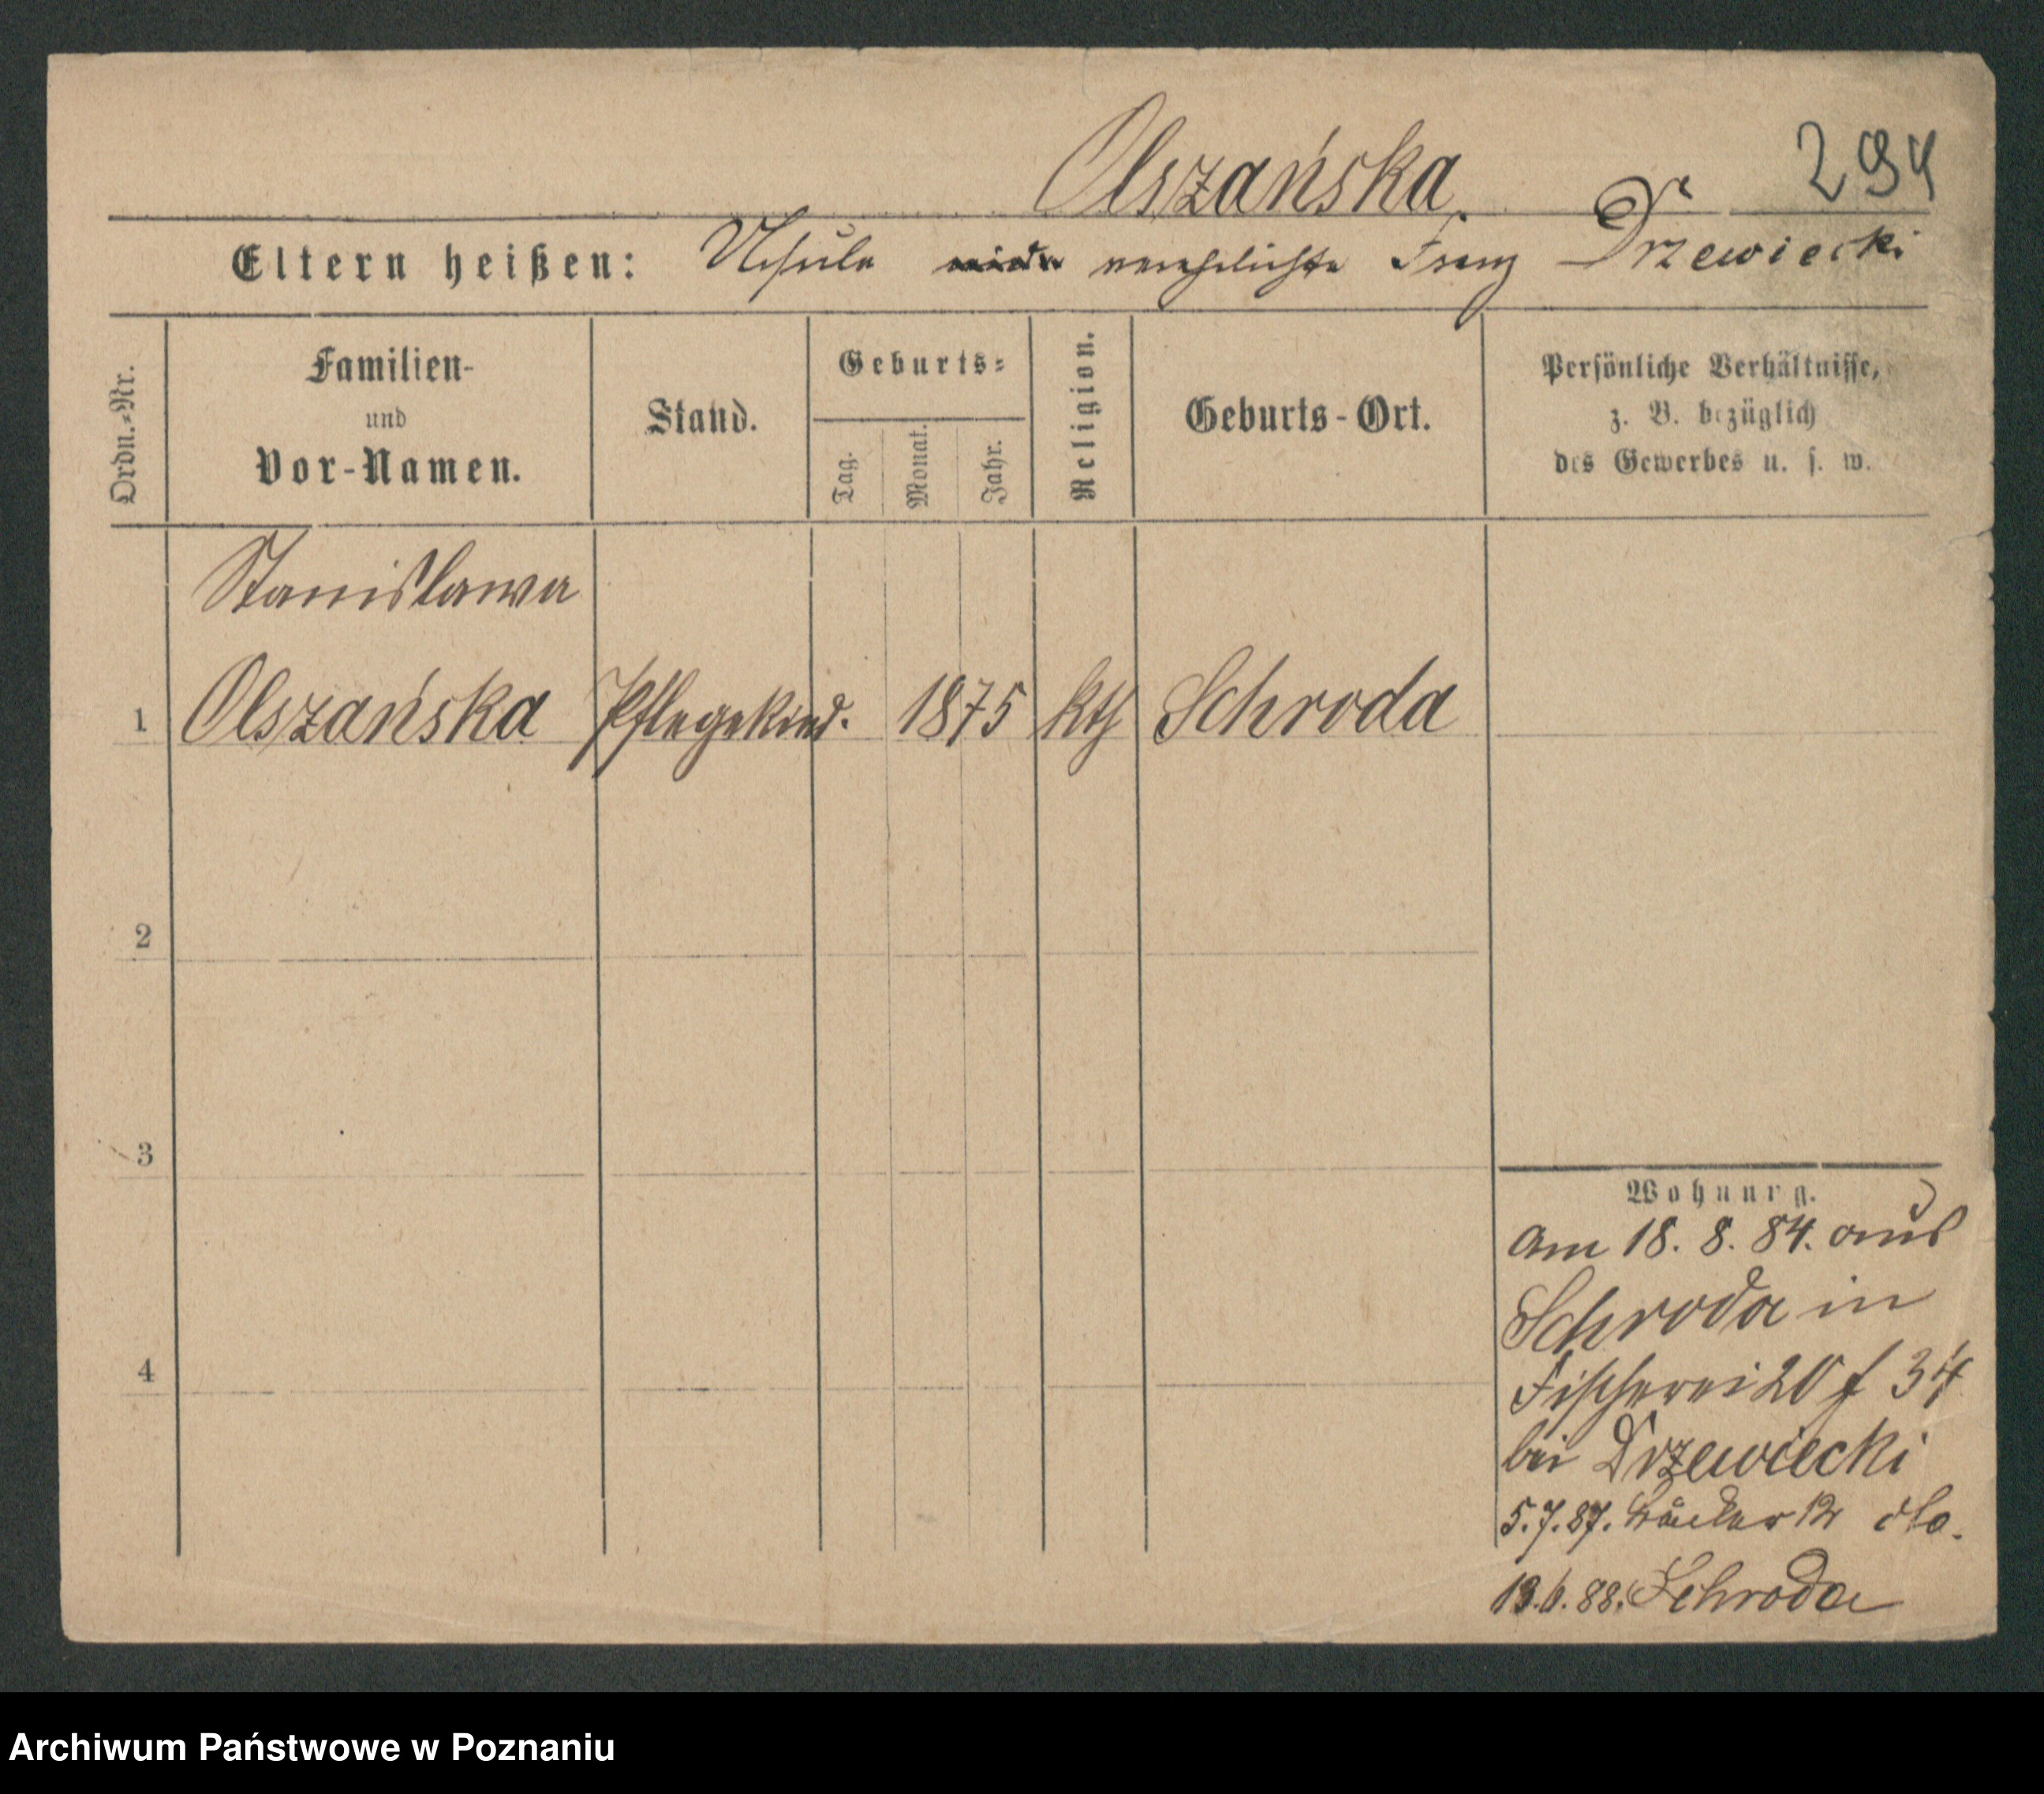 Olszańska.
294
Eltern heißen: Ursula verehelichte Franz Drzewiecki
Ordn.-Nr.
Familien-
und
Vor-Namen.
Stand.
Geburts-
Tag.
Monat.
Jahr.
Religion.
Geburts-Ort.
Persönliche Verhältnisse,
z. B. bezüglich
des Gewerbes u. s. w.
Stanislawa
1 Olszańska Pflegekind. 1875 kth Schroda
2
3
4
Wohnung.
Am 18. 8. 84. aus
Schroda in
Fischerei 20 f 34
bei Drzewiecki
5.7.87. Bäcker 12 dto.
13.6.88. Schroda
Archiwum Państwowe w Poznaniu